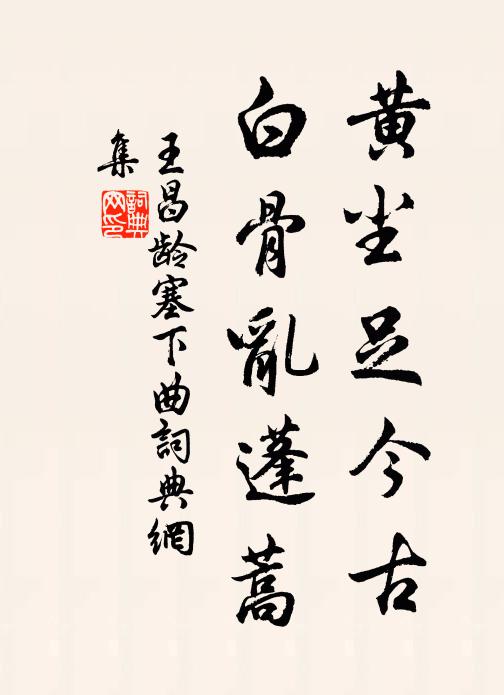 黄尘足今古
白骨亂蓬蒿
王昌龄塞下曲詞典網
集
詞典
网印